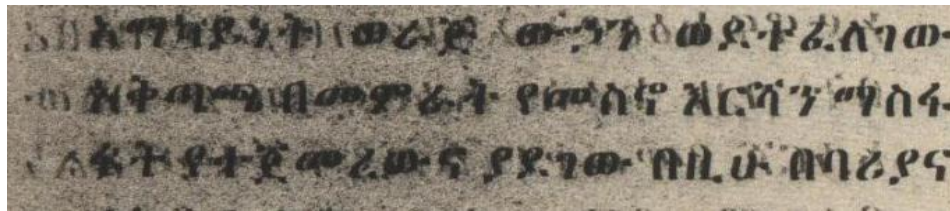 አማካይነት ወራጅ ውኃን ወደተፈለገው
አቅጣጫ በመምራት የመስኖ እርሻን ማስፋ
ፋት የተጀመረውና ያደገው በዚሁ በባሪያና